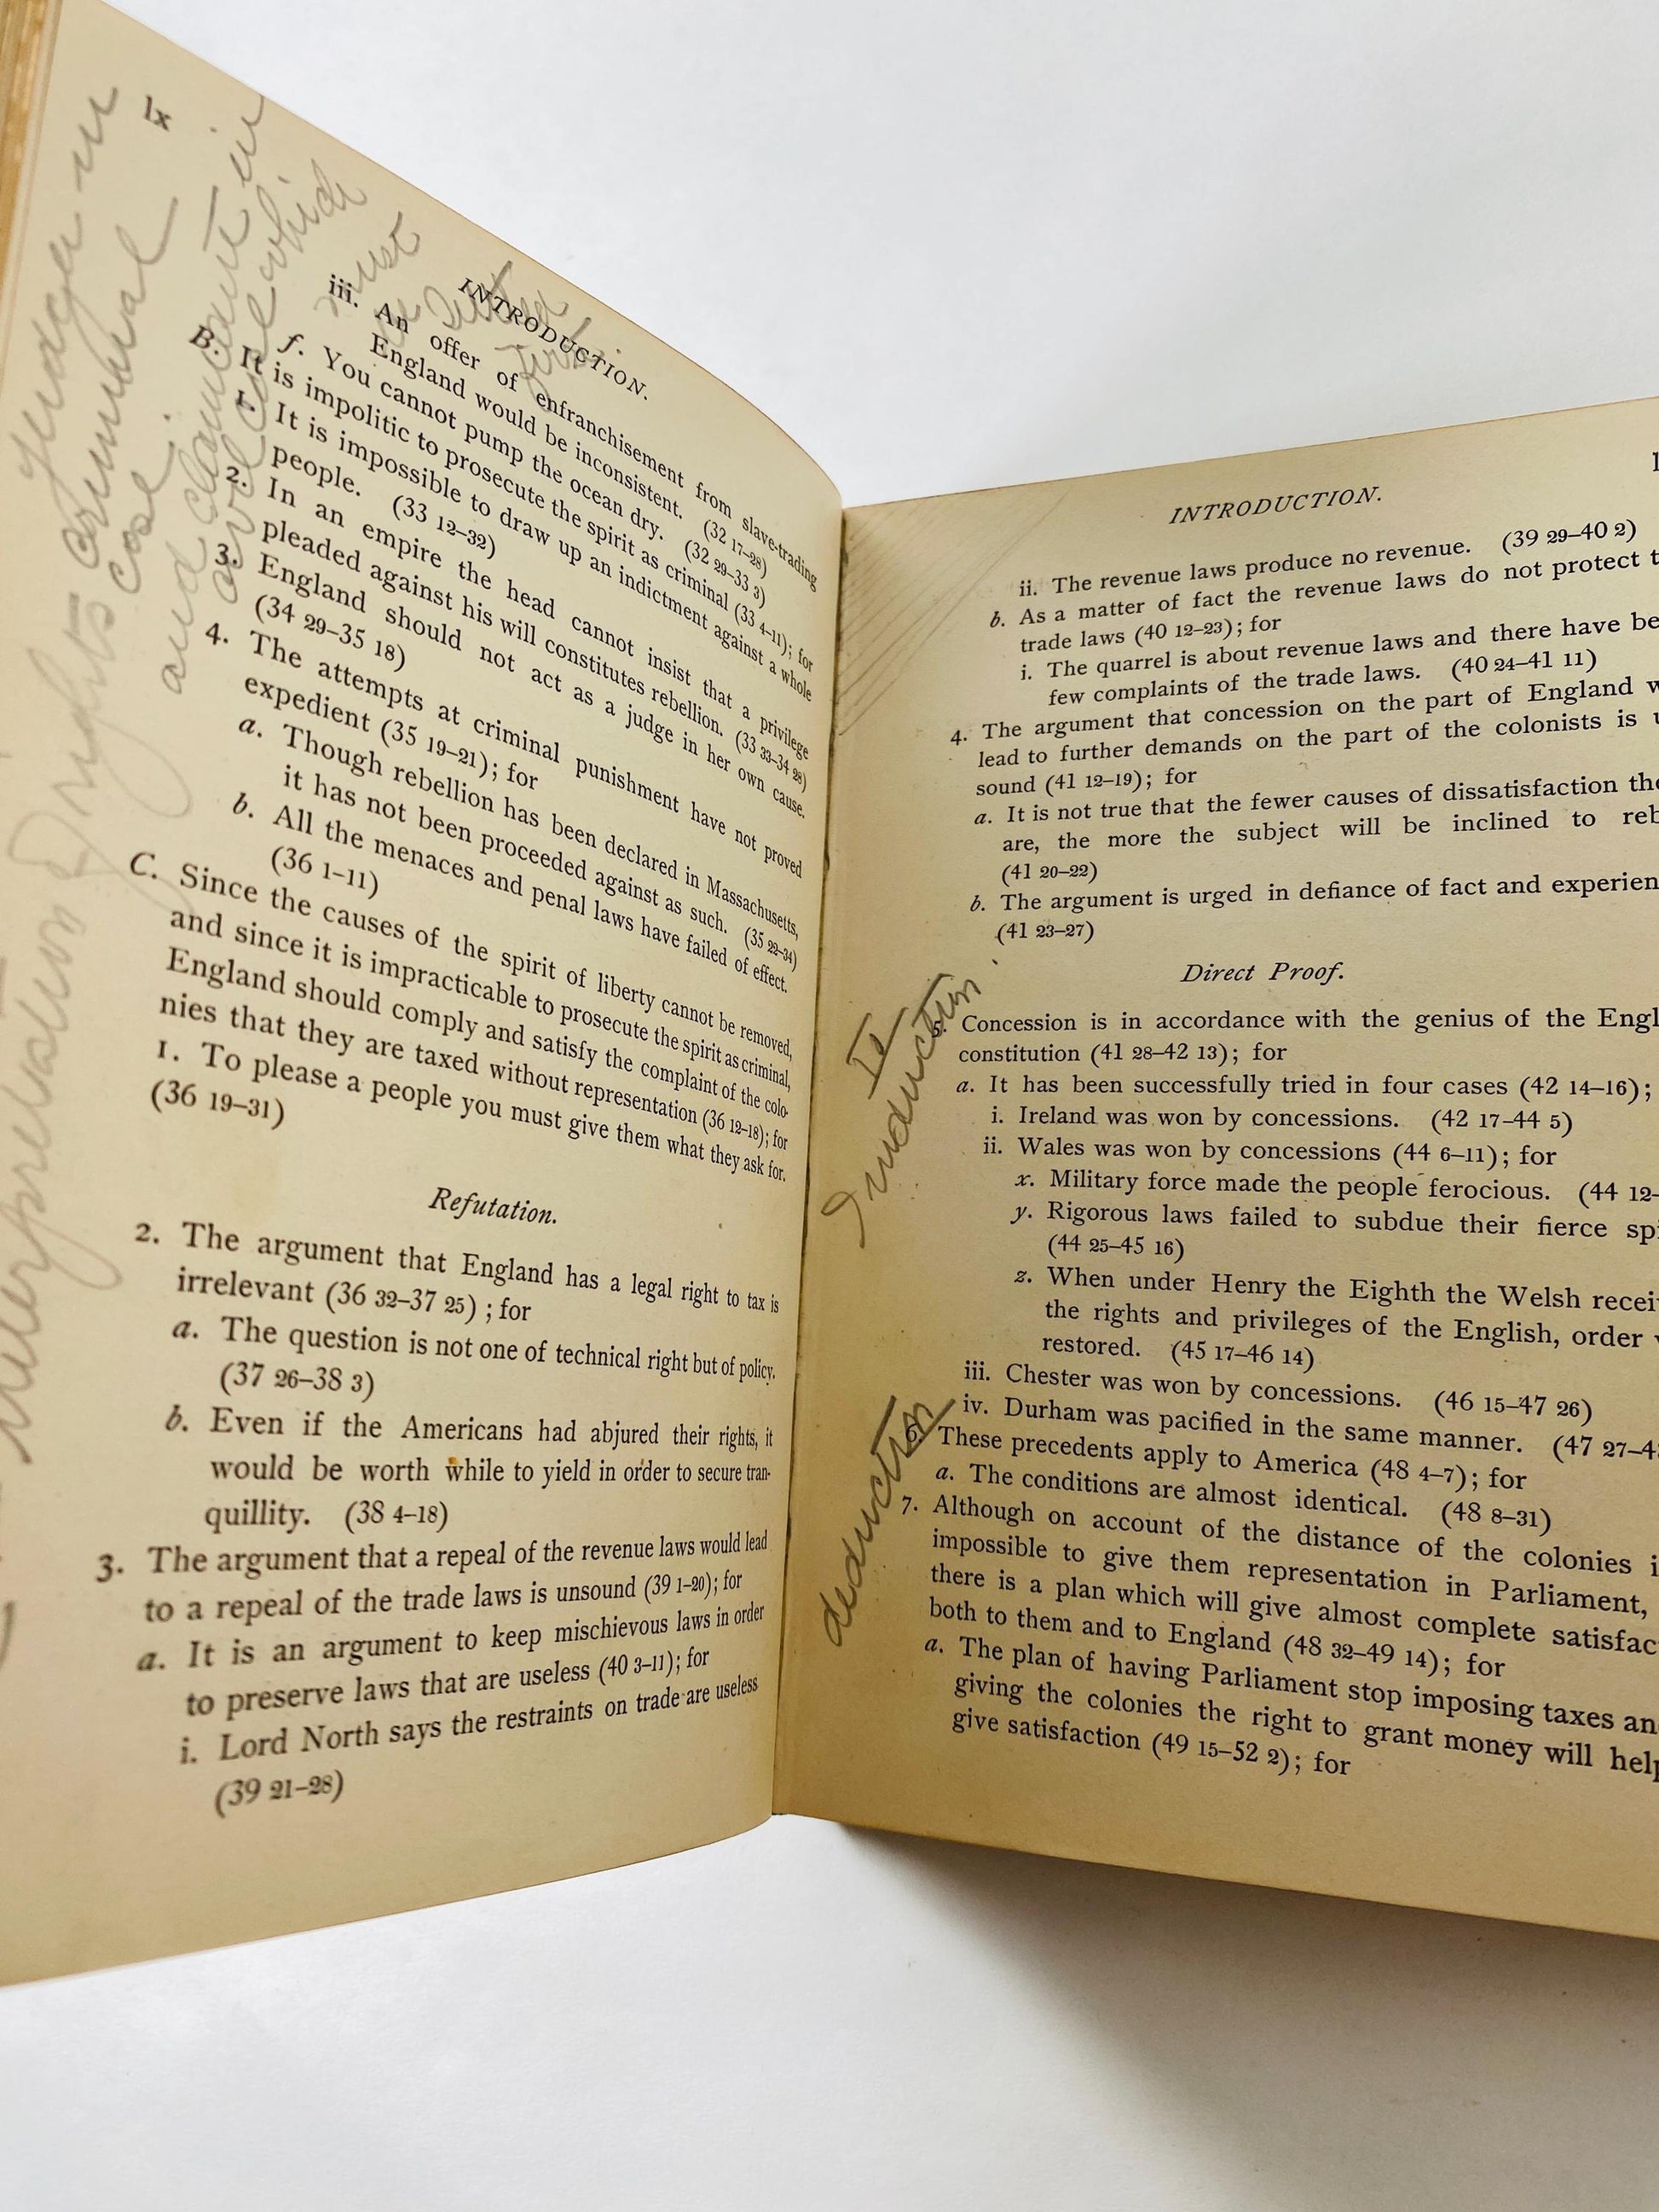 lx
INTRODUCTION.
iii. An offer of enfranchisement from slave-trading
England would be inconsistent. (32 17–28)
f. You cannot pump the ocean dry. (32 29–33 3)
B. It is impolitic to prosecute the spirit as criminal (33 4–11); for
1. It is impossible to draw up an indictment against a whole
people. (33 12–32)
2. In an empire the head cannot insist that a privilege
pleaded against his will constitutes rebellion. (33 33–34 28)
3. England should not act as a judge in her own cause.
(34 29–35 18)
4. The attempts at criminal punishment have not proved
expedient (35 19–21); for
a. Though rebellion has been declared in Massachusetts,
it has not been proceeded against as such. (35 22–34)
b. All the menaces and penal laws have failed of effect.
(36 1–11)
C. Since the causes of the spirit of liberty cannot be removed,
and since it is impracticable to prosecute the spirit as criminal,
England should comply and satisfy the complaint of the colo-
nies that they are taxed without representation (36 12–18); for
1. To please a people you must give them what they ask for.
(36 19–31)
Refutation.
2. The argument that England has a legal right to tax is
irrelevant (36 32–37 25) ; for
a. The question is not one of technical right but of policy.
(37 26–38 3)
b. Even if the Americans had abjured their rights, it
would be worth while to yield in order to secure tran-
quillity. (38 4–18)
3. The argument that a repeal of the revenue laws would lead
to a repeal of the trade laws is unsound (39 1–20); for
a. It is an argument to keep mischievous laws in order
to preserve laws that are useless (40 3–11); for
i. Lord North says the restraints on trade are useless
(39 21–28)
Judge in
criminal
case.
and claimant in
civil case which
must
be settled
first
INTRODUCTION.
ii. The revenue laws produce no revenue. (39 29–40 2)
b. As a matter of fact the revenue laws do not protect
trade laws (40 12–23); for
i. The quarrel is about revenue laws and there have
few complaints of the trade laws. (40 24–41 11)
4. The argument that concession on the part of England
lead to further demands on the part of the colonists is
sound (41 12–19); for
a. It is not true that the fewer causes of dissatisfaction
are, the more the subject will be inclined to
(41 20–22)
b. The argument is urged in defiance of fact and
(41 23–27)
Direct Proof.
5. Concession is in accordance with the genius of the
constitution (41 28–42 13); for
a. It has been successfully tried in four cases (42 14–16);
i. Ireland was won by concessions. (42 17–44 5)
ii. Wales was won by concessions (44 6–11); for
x. Military force made the people ferocious. (44 12–
y. Rigorous laws failed to subdue their fierce
(44 25–45 16)
z. When under Henry the Eighth the Welsh
the rights and privileges of the English, order
restored. (45 17–46 14)
iii. Chester was won by concessions. (46 15–47 26)
iv. Durham was pacified in the same manner. (47 27–
These precedents apply to America (48 4–7); for
a. The conditions are almost identical. (48 8–31)
7. Although on account of the distance of the colonies
impossible to give them representation in Parliament,
there is a plan which will give almost complete
both to them and to England (48 32–49 14); for
a. The plan of having Parliament stop imposing taxes
giving the colonies the right to grant money will
give satisfaction (49 15–52 2); for
Induction.
deduction